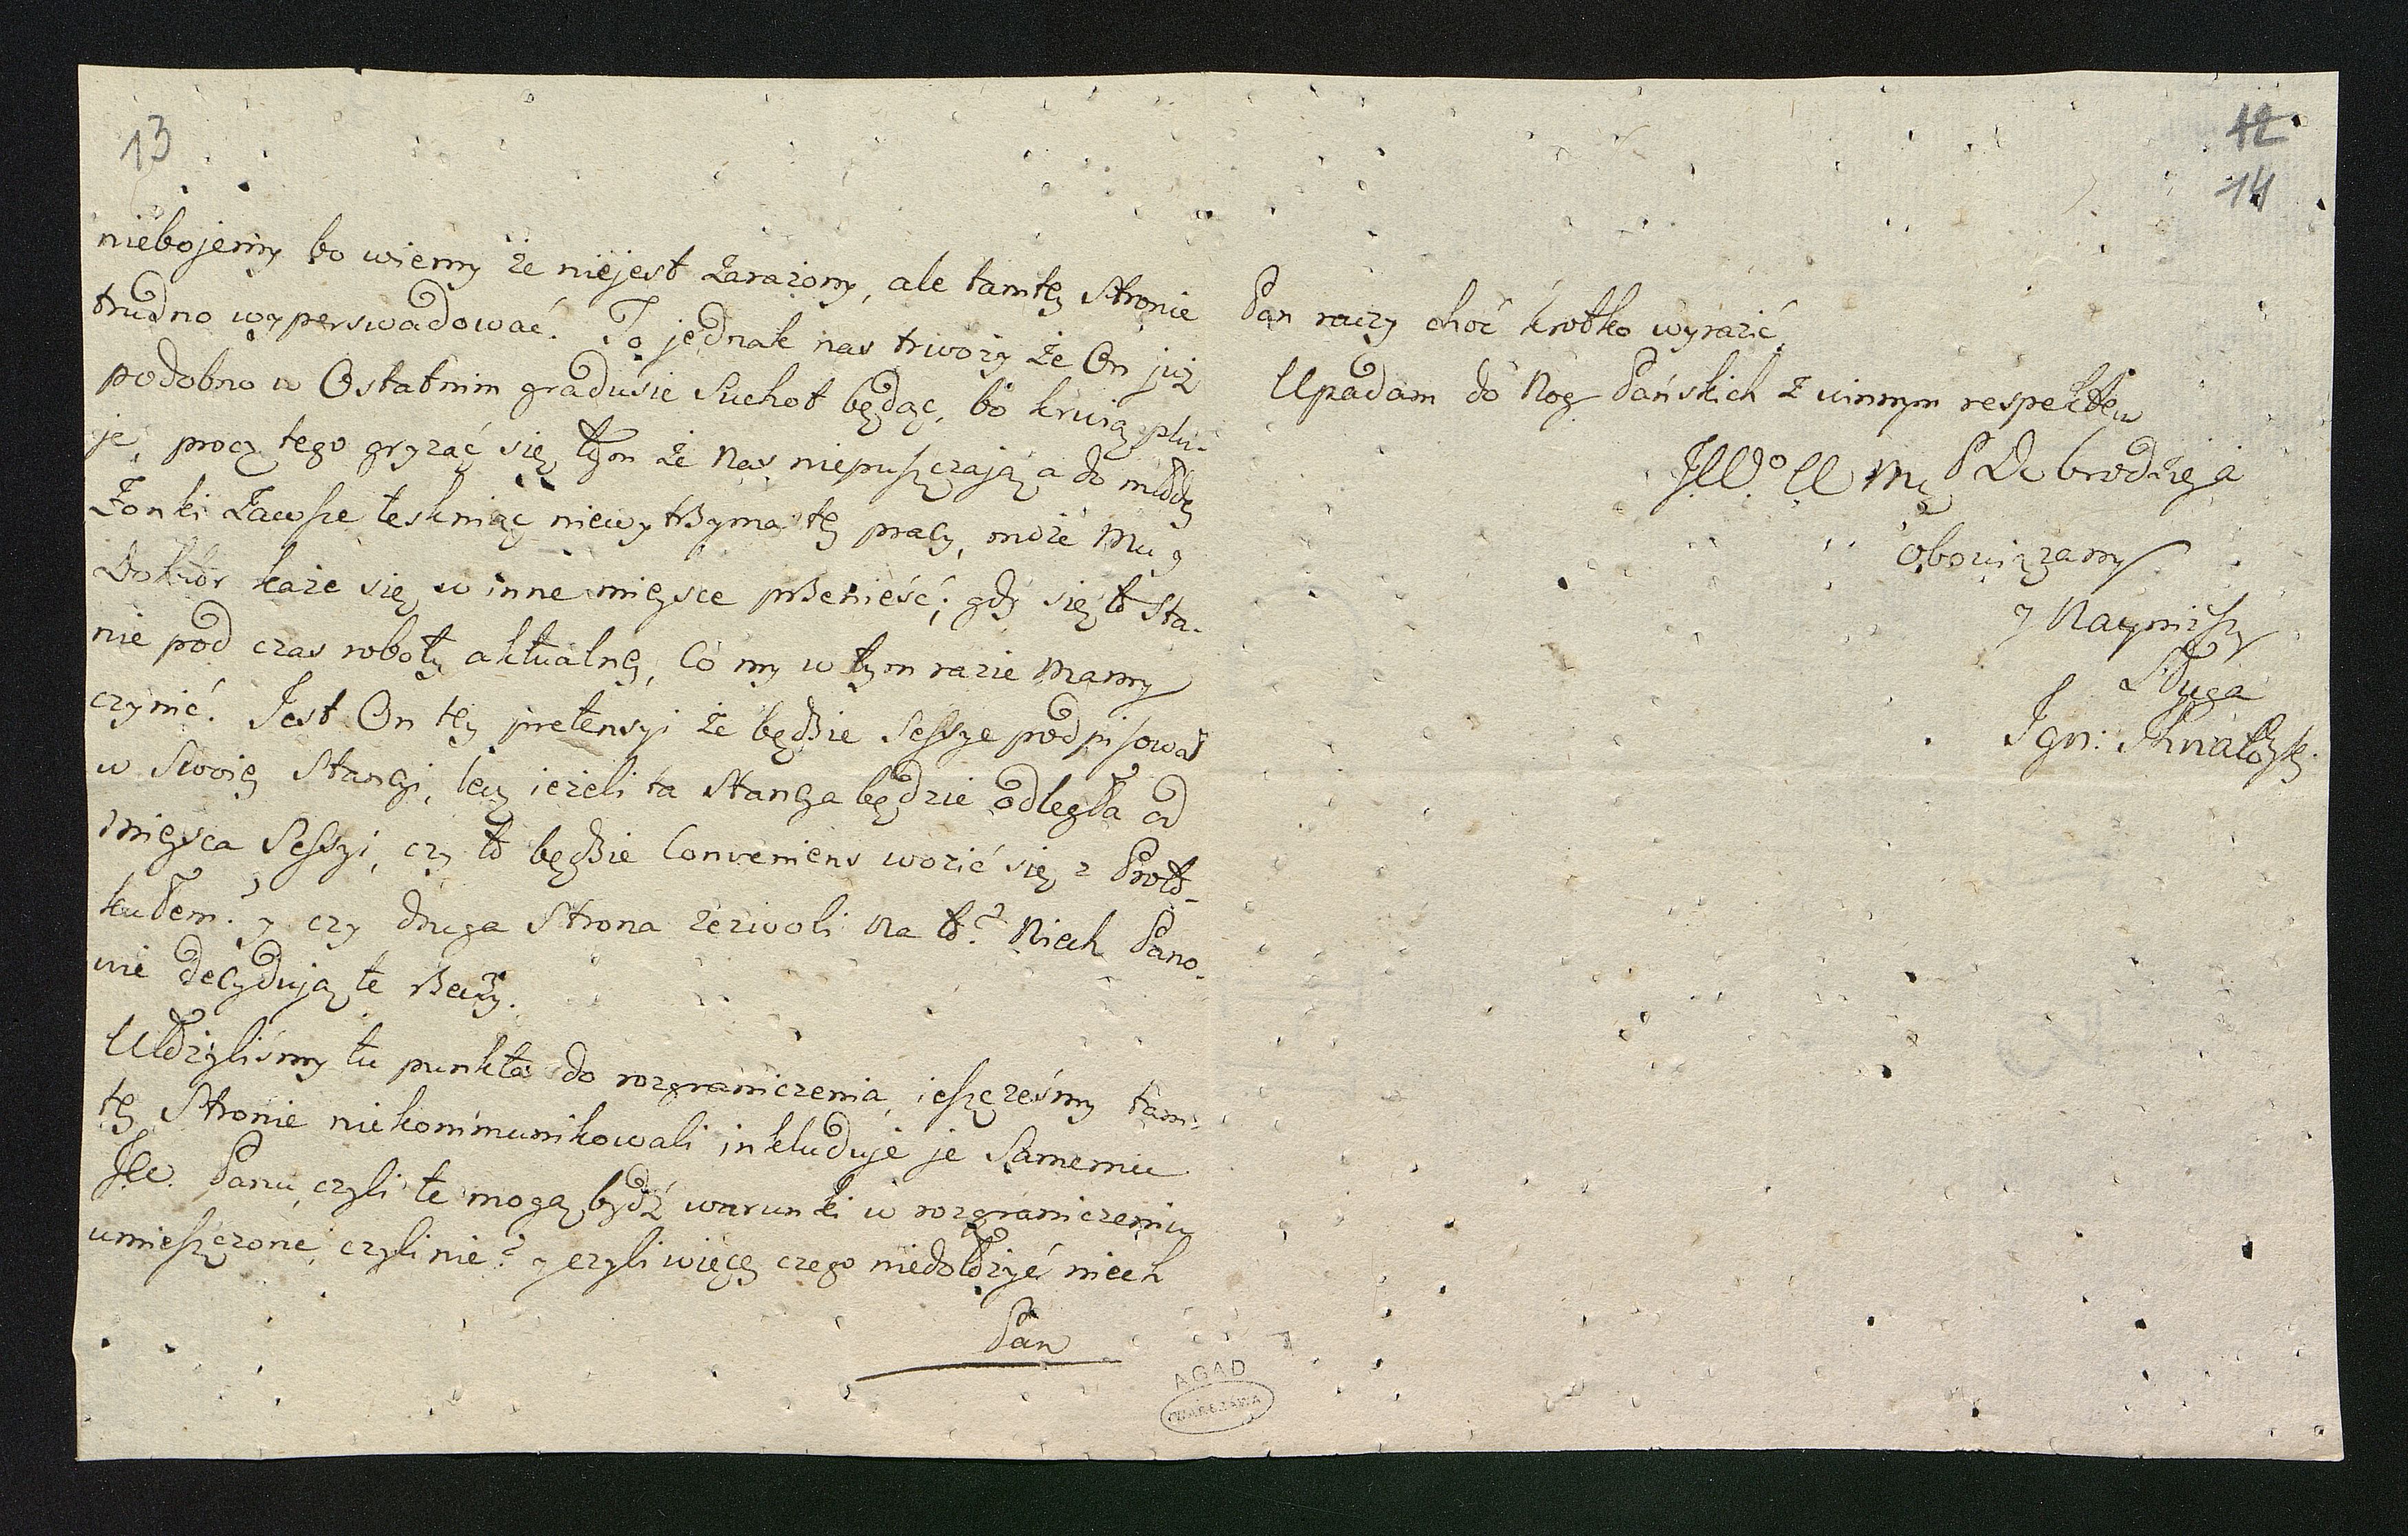 13
niebojemy bo wiemy że niejest zarażony, ale tamtey Stronie
trudno wyperswadować. To jednak nas trwoży że On już
podobno w Ostatnim gradusie Suchot będąc, bo krwią plu-
je, procz tego gryząc się tym że Nas niepuszczają a do młody
Żonki Zawsze teskniąc niewytrzyma tey pracy, może Mu
Doktor każe się w inne mieysce przenieść; gdy się to Sta-
nie pod czas roboty aktualney, Co my w tym razie mamy
czynić. Jest On tey pretensyi że będzie Sessye podpisował
w Swoiey Stancyi, lecz ieżeli ta Stancya będzie odległa od
mieysca Sessyi, czy to będzie Conveniens wozić się z Proto-
kułem? y czy druga Strona zezwoli na to? Niech Pano-
wie decydują te Rzeczy.
Ułożyliśmy tu punkta do rozgraniczenia, ieszczeżeśmy tam-
tey Stronie niekommunikowali inkluduje je Samemu
JW. Panu, czyli te mogą bydź warunki w rozgraniczeniu
umieszczone, czyli nie? y czyli więcey czego niedołożyć niech
Pan
12
14
Pan raczy choć krotko wyrazić.
Upadam do Nog Pańskich z winnym respektem
JWo W Mę P Dobrodzieja
obowiązany
y Nayniższy
Sługa
Ign:
AGAD
WARSZAWA